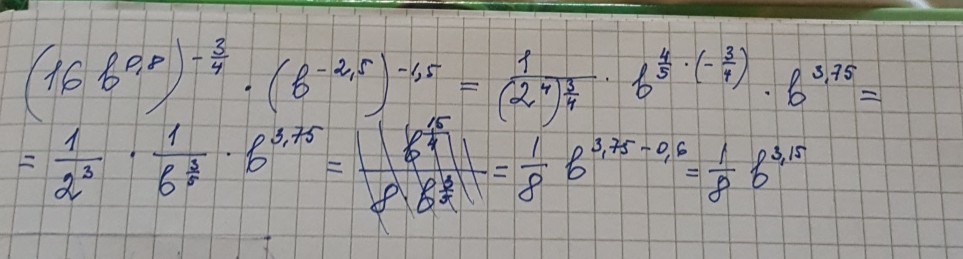 (16 b^0,8)^-3/4 · (b^-2,5)^-1,5 = 1/(2^4)^3/4 · b^4/5·(-3/4) · b^3,75 =
= 1/2^3 · 1/b^3/5 · b^3,75 = b^15/4 / 8·b^3/5 = 1/8 b^3,75-0,6 = 1/8 b^3,15